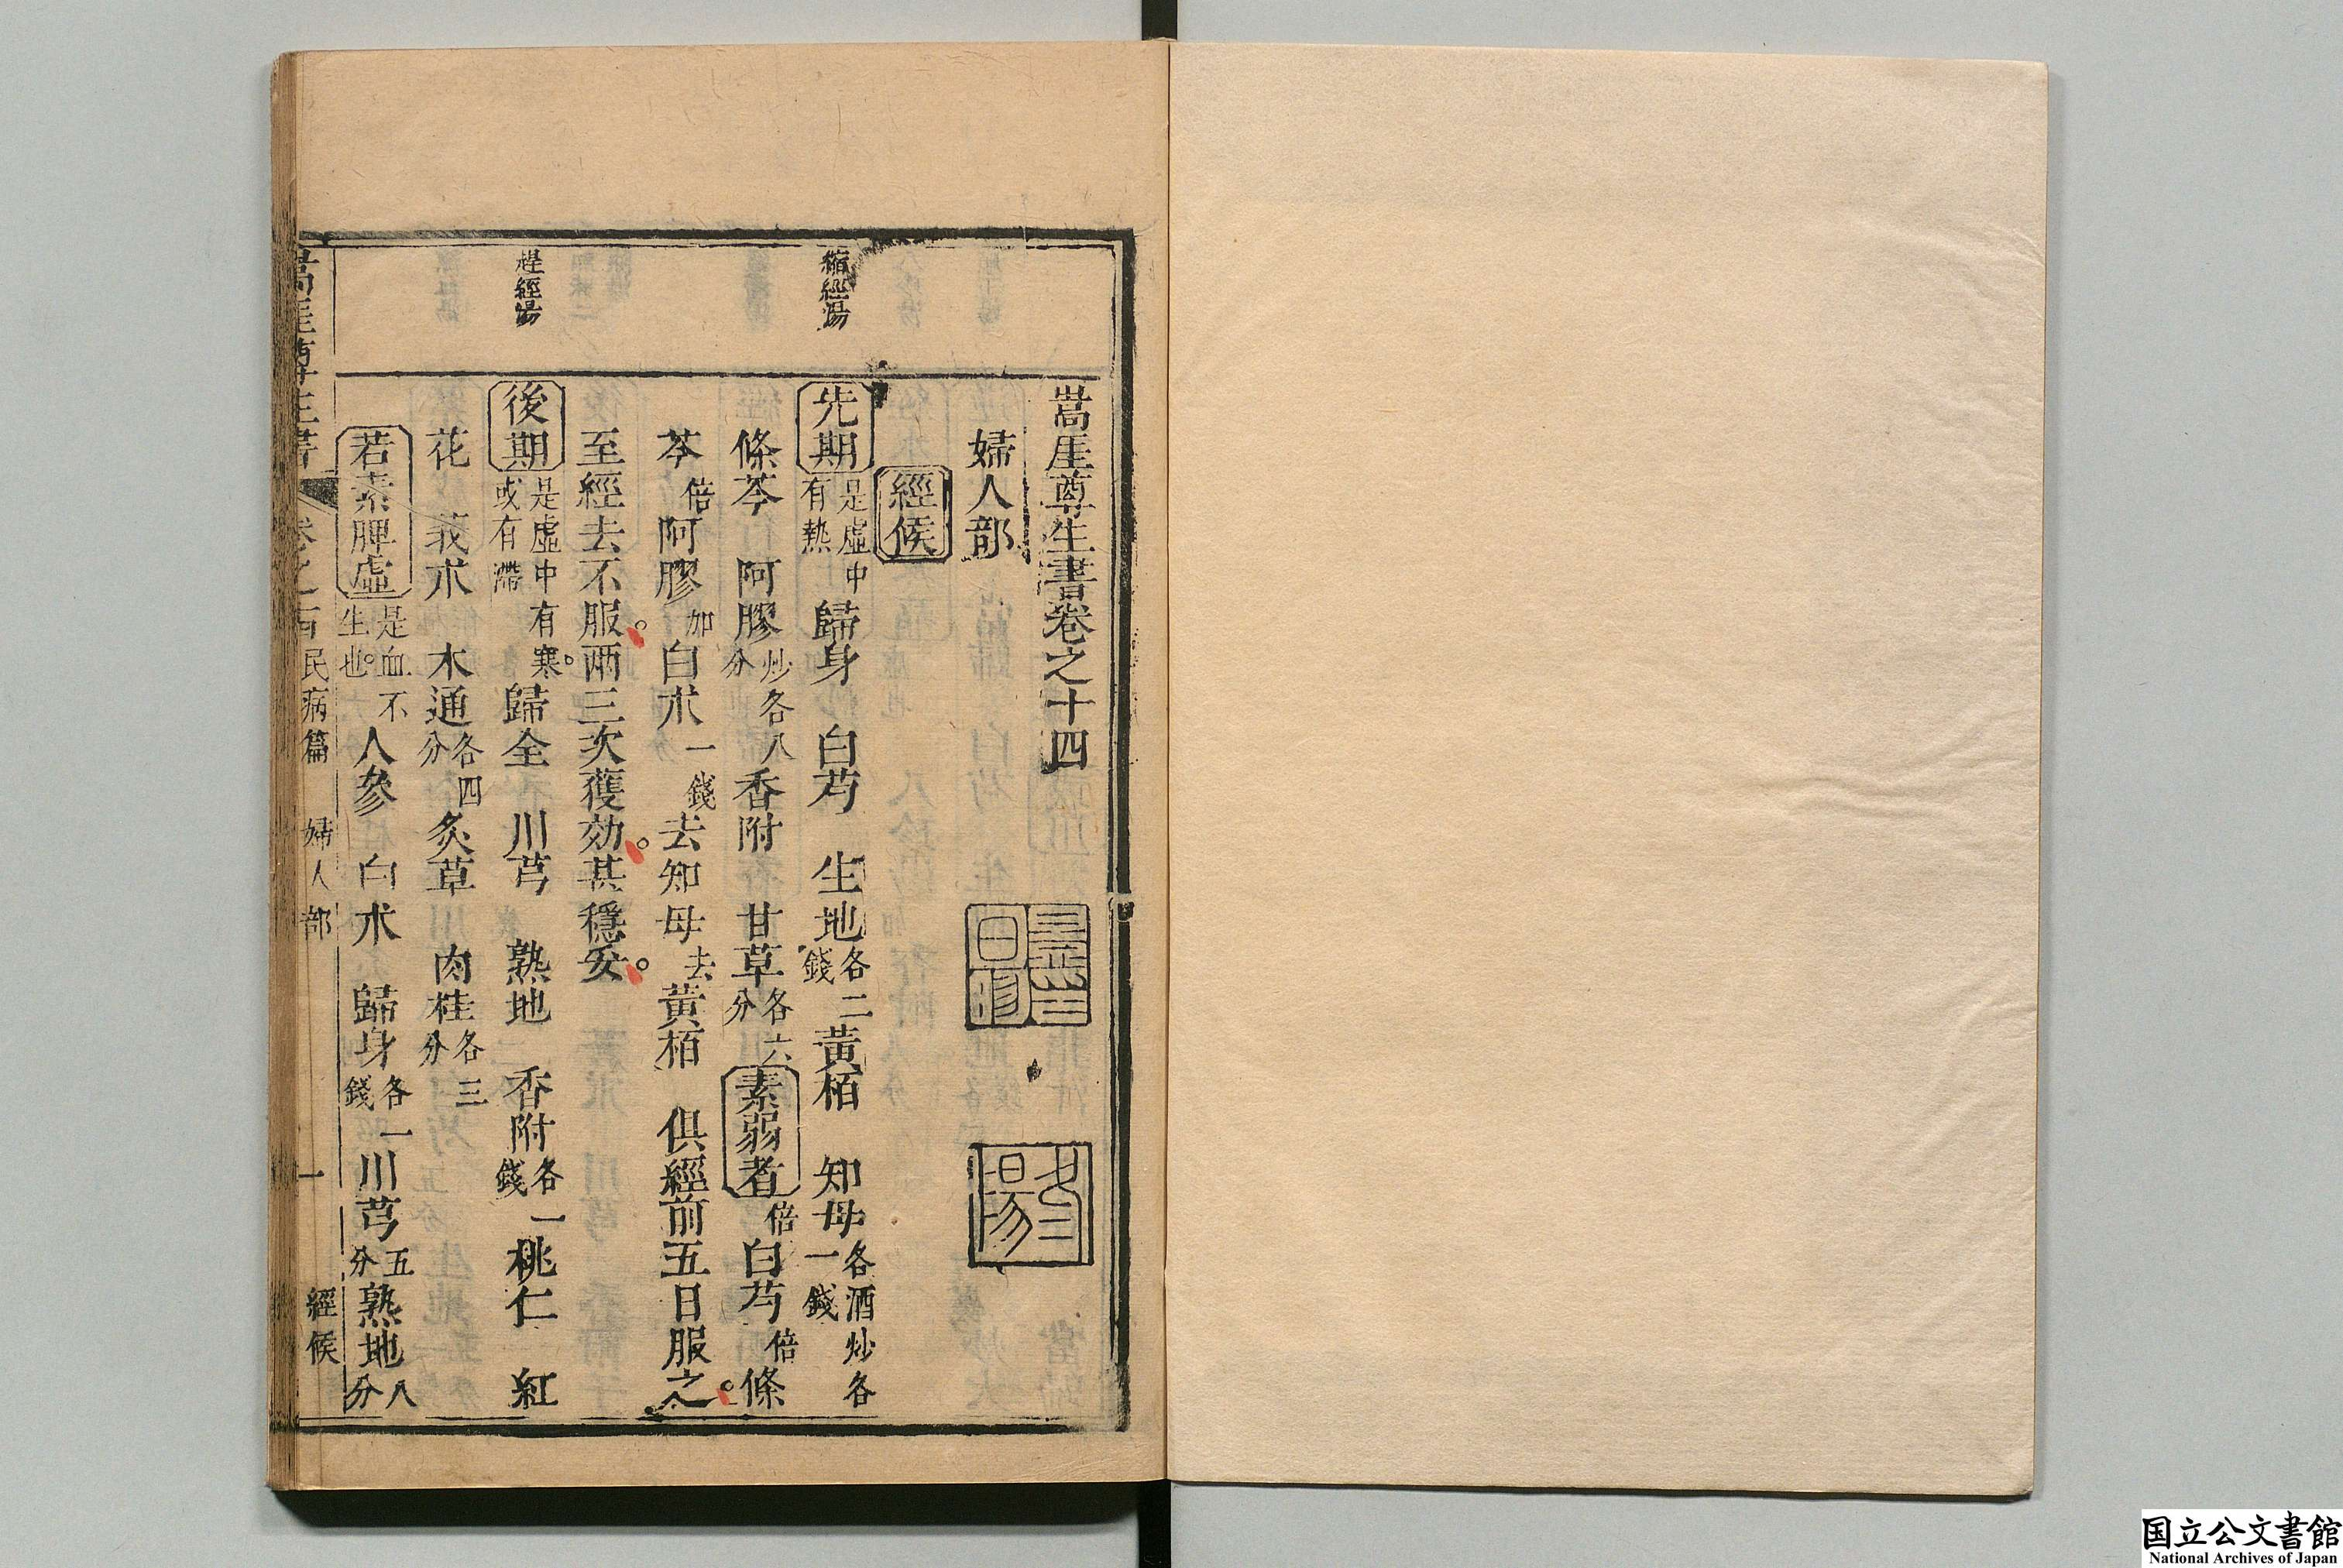 嵩厓尊生書卷之十四
婦人部
經候
縮經湯
先期 是虛中有熱 歸身 白芍 生地各二錢 黃栢 知母各酒炒各一錢
條芩 阿膠炒各八分 香附 甘草各六分 素弱者 倍白芍 倍條
芩 倍阿膠 加白朮一錢 去知母 去黃栢 俱經前五日服之。
至經去不服。兩三次獲効。甚穩妥。
趕經湯
後期 是虛中有寒。或有滯 歸全 川芎 熟地 香附各一錢 桃仁 紅
花 莪朮 木通各四分 炙草 肉桂各三分
若素脾虛 是血不生也。 人參 白朮 歸身各一錢 川芎五分 熟地八分
民病篇 婦人部 一 經候
国立公文書館
National Archives of Japan